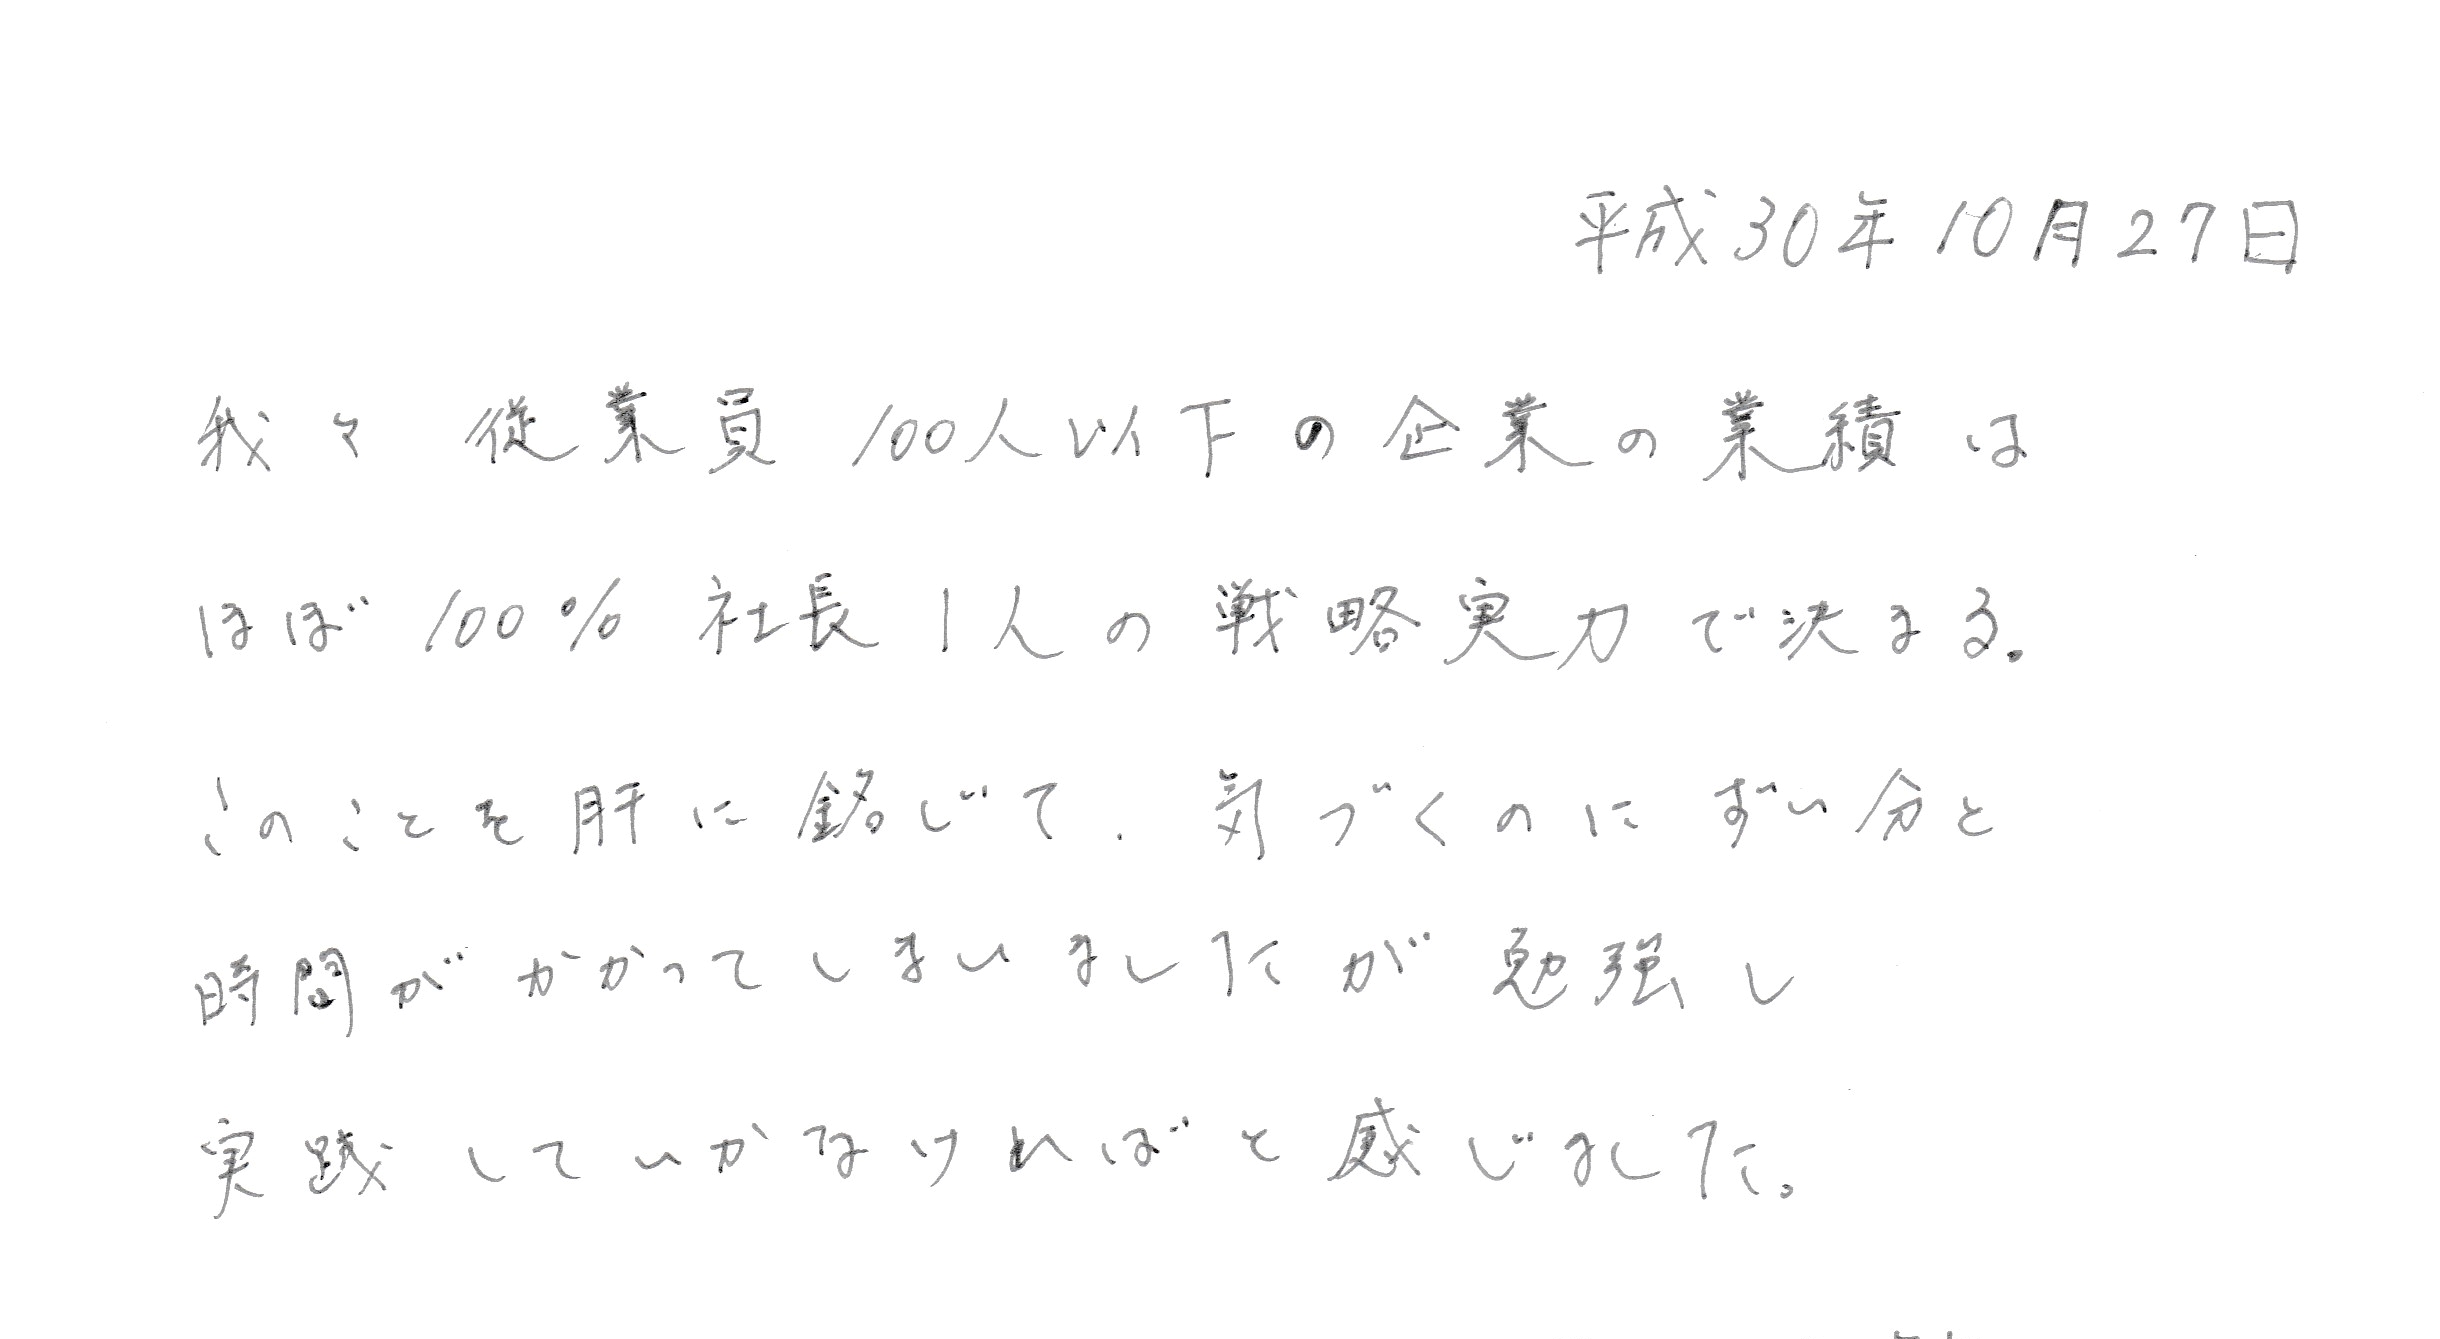 平成30年10月27日
我々 従業員 100人以下の企業の業績は
ほぼ 100% 社長1人の戦略実力で決まる。
このことを肝に銘じて、気づくのにずい分と
時間がかかってしまいましたが勉強し
実践していかなければと感じました。